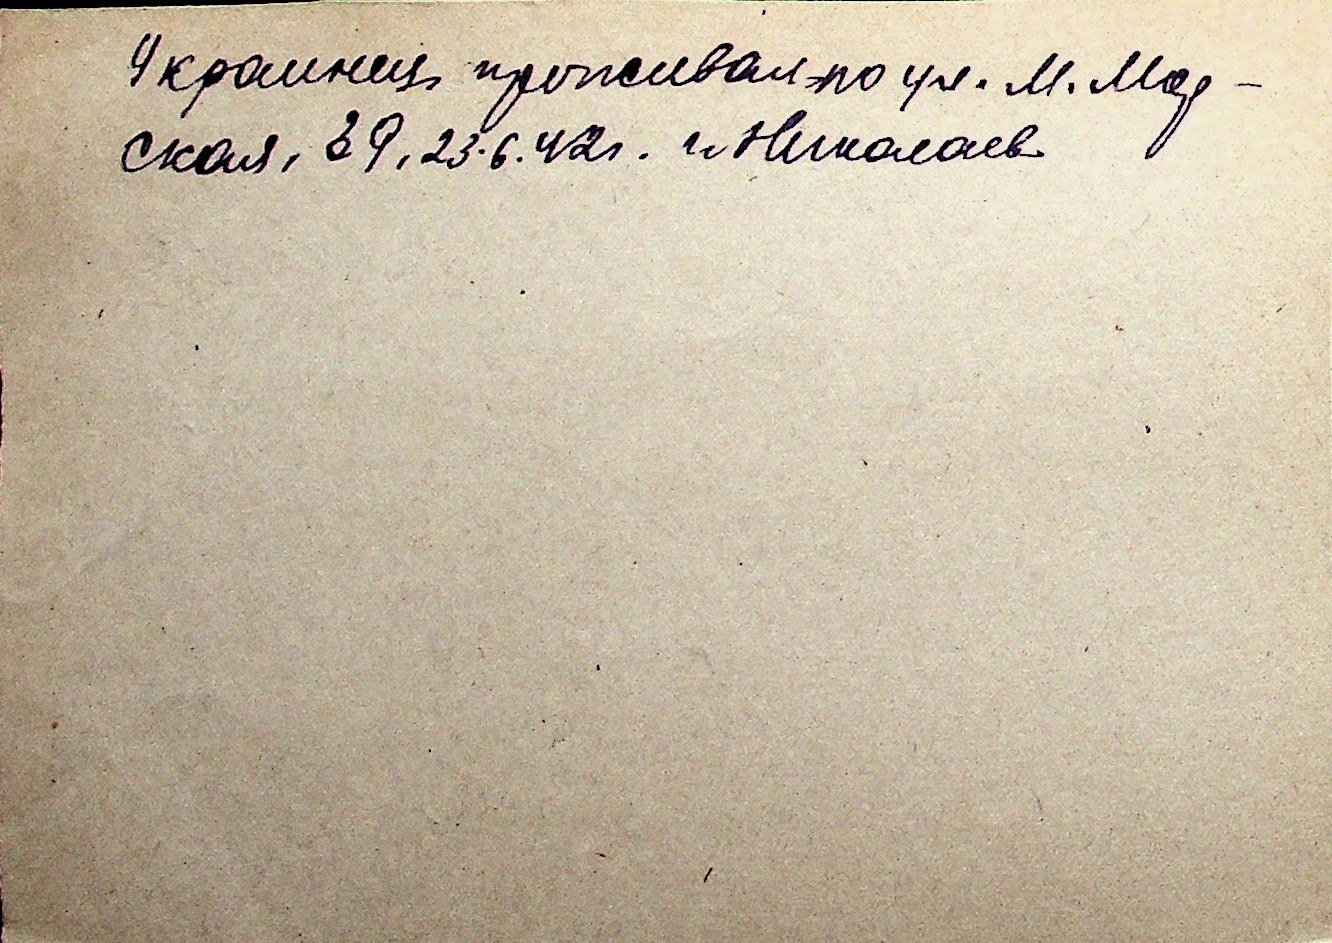 Украинец проживал по ул. М. Мор-
ская, 29, 23.6.42г. г. Николаев